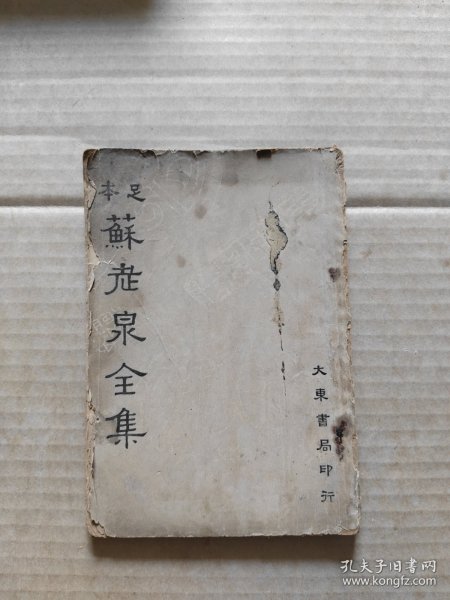 足本
蘇老泉全集
大東書局印行
孔夫子旧书网
www.kongfz.com